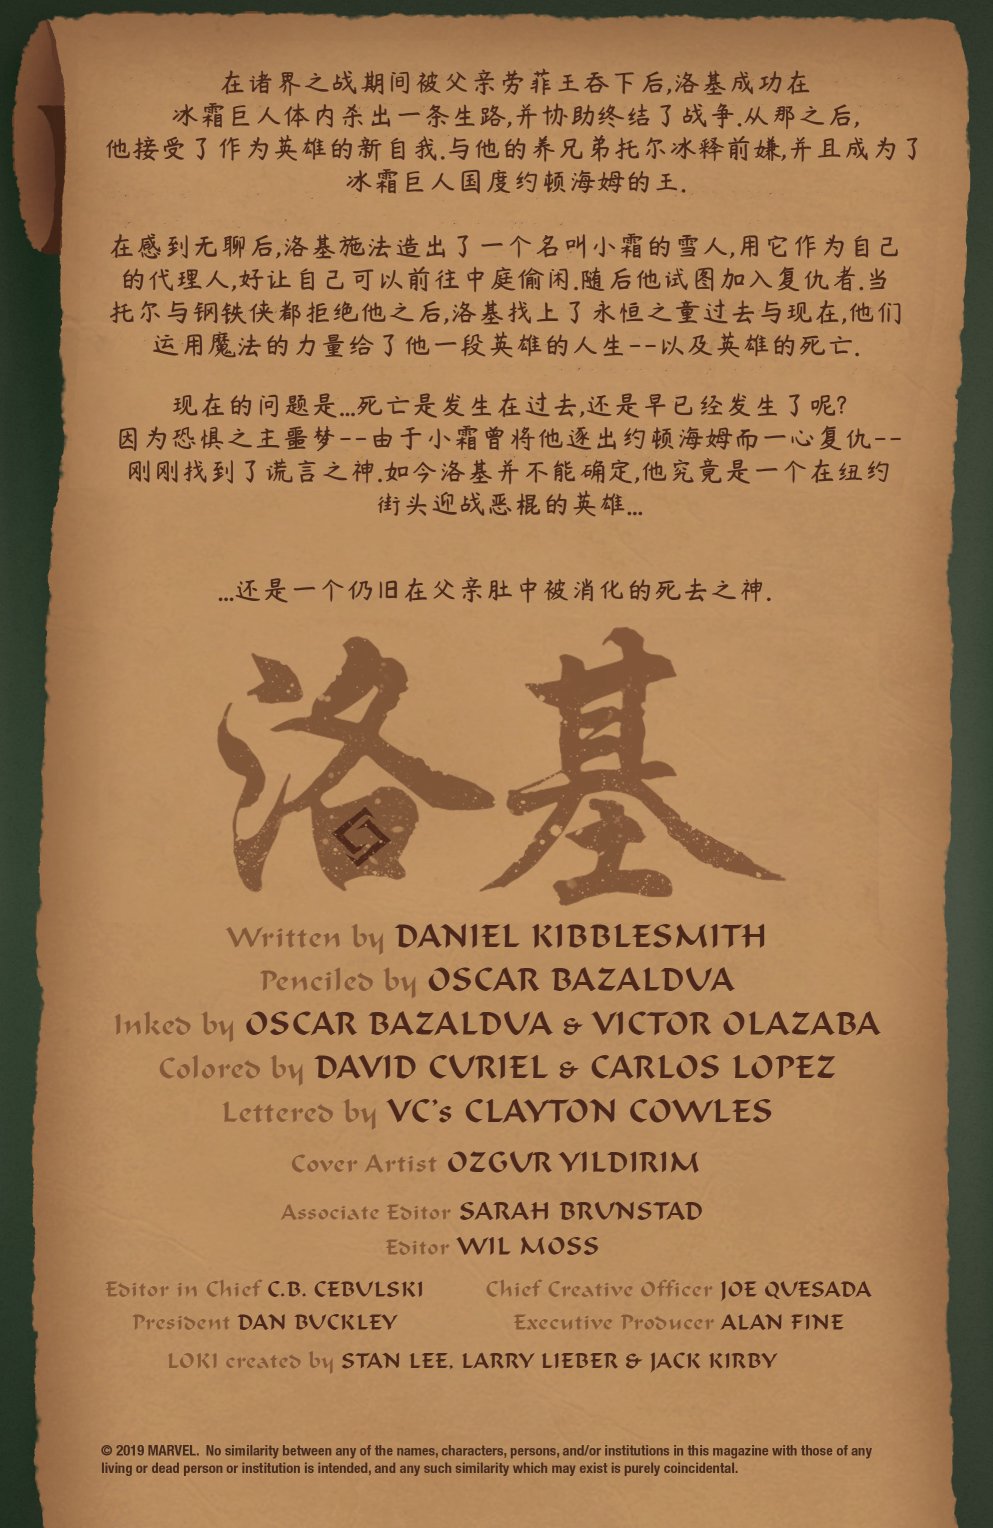 在诸界之战期间被父亲劳菲王吞下后,洛基成功在
冰霜巨人体内杀出一条生路,并协助终结了战争.从那之后,
他接受了作为英雄的新自我.与他的养兄弟托尔冰释前嫌,并且成为了
冰霜巨人国度约顿海姆的王.
在感到无聊后,洛基施法造出了一个名叫小霜的雪人,用它作为自己
的代理人,好让自己可以前往中庭偷闲.随后他试图加入复仇者.当
托尔与钢铁侠都拒绝他之后,洛基找上了永恒之童过去与现在,他们
运用魔法的力量给了他一段英雄的人生--以及英雄的死亡.
现在的问题是...死亡是发生在过去,还是早已经发生了呢?
因为恐惧之主噩梦--由于小霜曾将他逐出约顿海姆而一心复仇--
刚刚找到了谎言之神.如今洛基并不能确定,他究竟是一个在纽约
街头迎战恶棍的英雄...
...还是一个仍旧在父亲肚中被消化的死去之神.
洛基
Written by DANIEL KIBBLESMITH
Penciled by OSCAR BAZALDUA
Inked by OSCAR BAZALDUA & VICTOR OLAZABA
Colored by DAVID CURIEL & CARLOS LOPEZ
Lettered by VC's CLAYTON COWLES
Cover Artist OZGUR YILDIRIM
Associate Editor SARAH BRUNSTAD
Editor WIL MOSS
Editor in Chief C.B. CEBULSKI
Chief Creative Officer JOE QUESADA
President DAN BUCKLEY
Executive Producer ALAN FINE
LOKI created by STAN LEE, LARRY LIEBER & JACK KIRBY
© 2019 MARVEL. No similarity between any of the names, characters, persons, and/or institutions in this magazine with those of any
living or dead person or institution is intended, and any such similarity which may exist is purely coincidental.